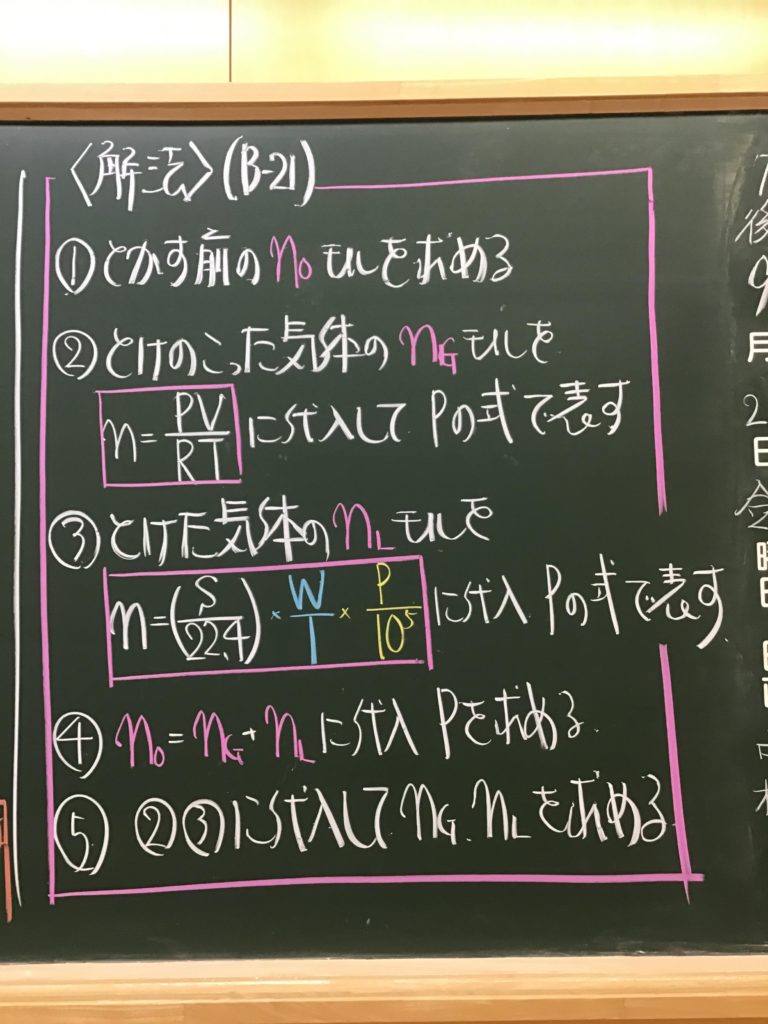 〈解法〉(B-21)
①とかす前のn₀モルを求める
②とけのこった気体のnGモルを
n=PV/RT に代入して Pの式で表す
③とけた気体のnLモルを
n=(S/22.4)×W/1×P/10⁵ に代入 Pの式で表す
④ n₀=nG+nLに代入 Pを求める
⑤ ②③に代入して nG、nLを求める
後
9
月
2
日
金
曜
日